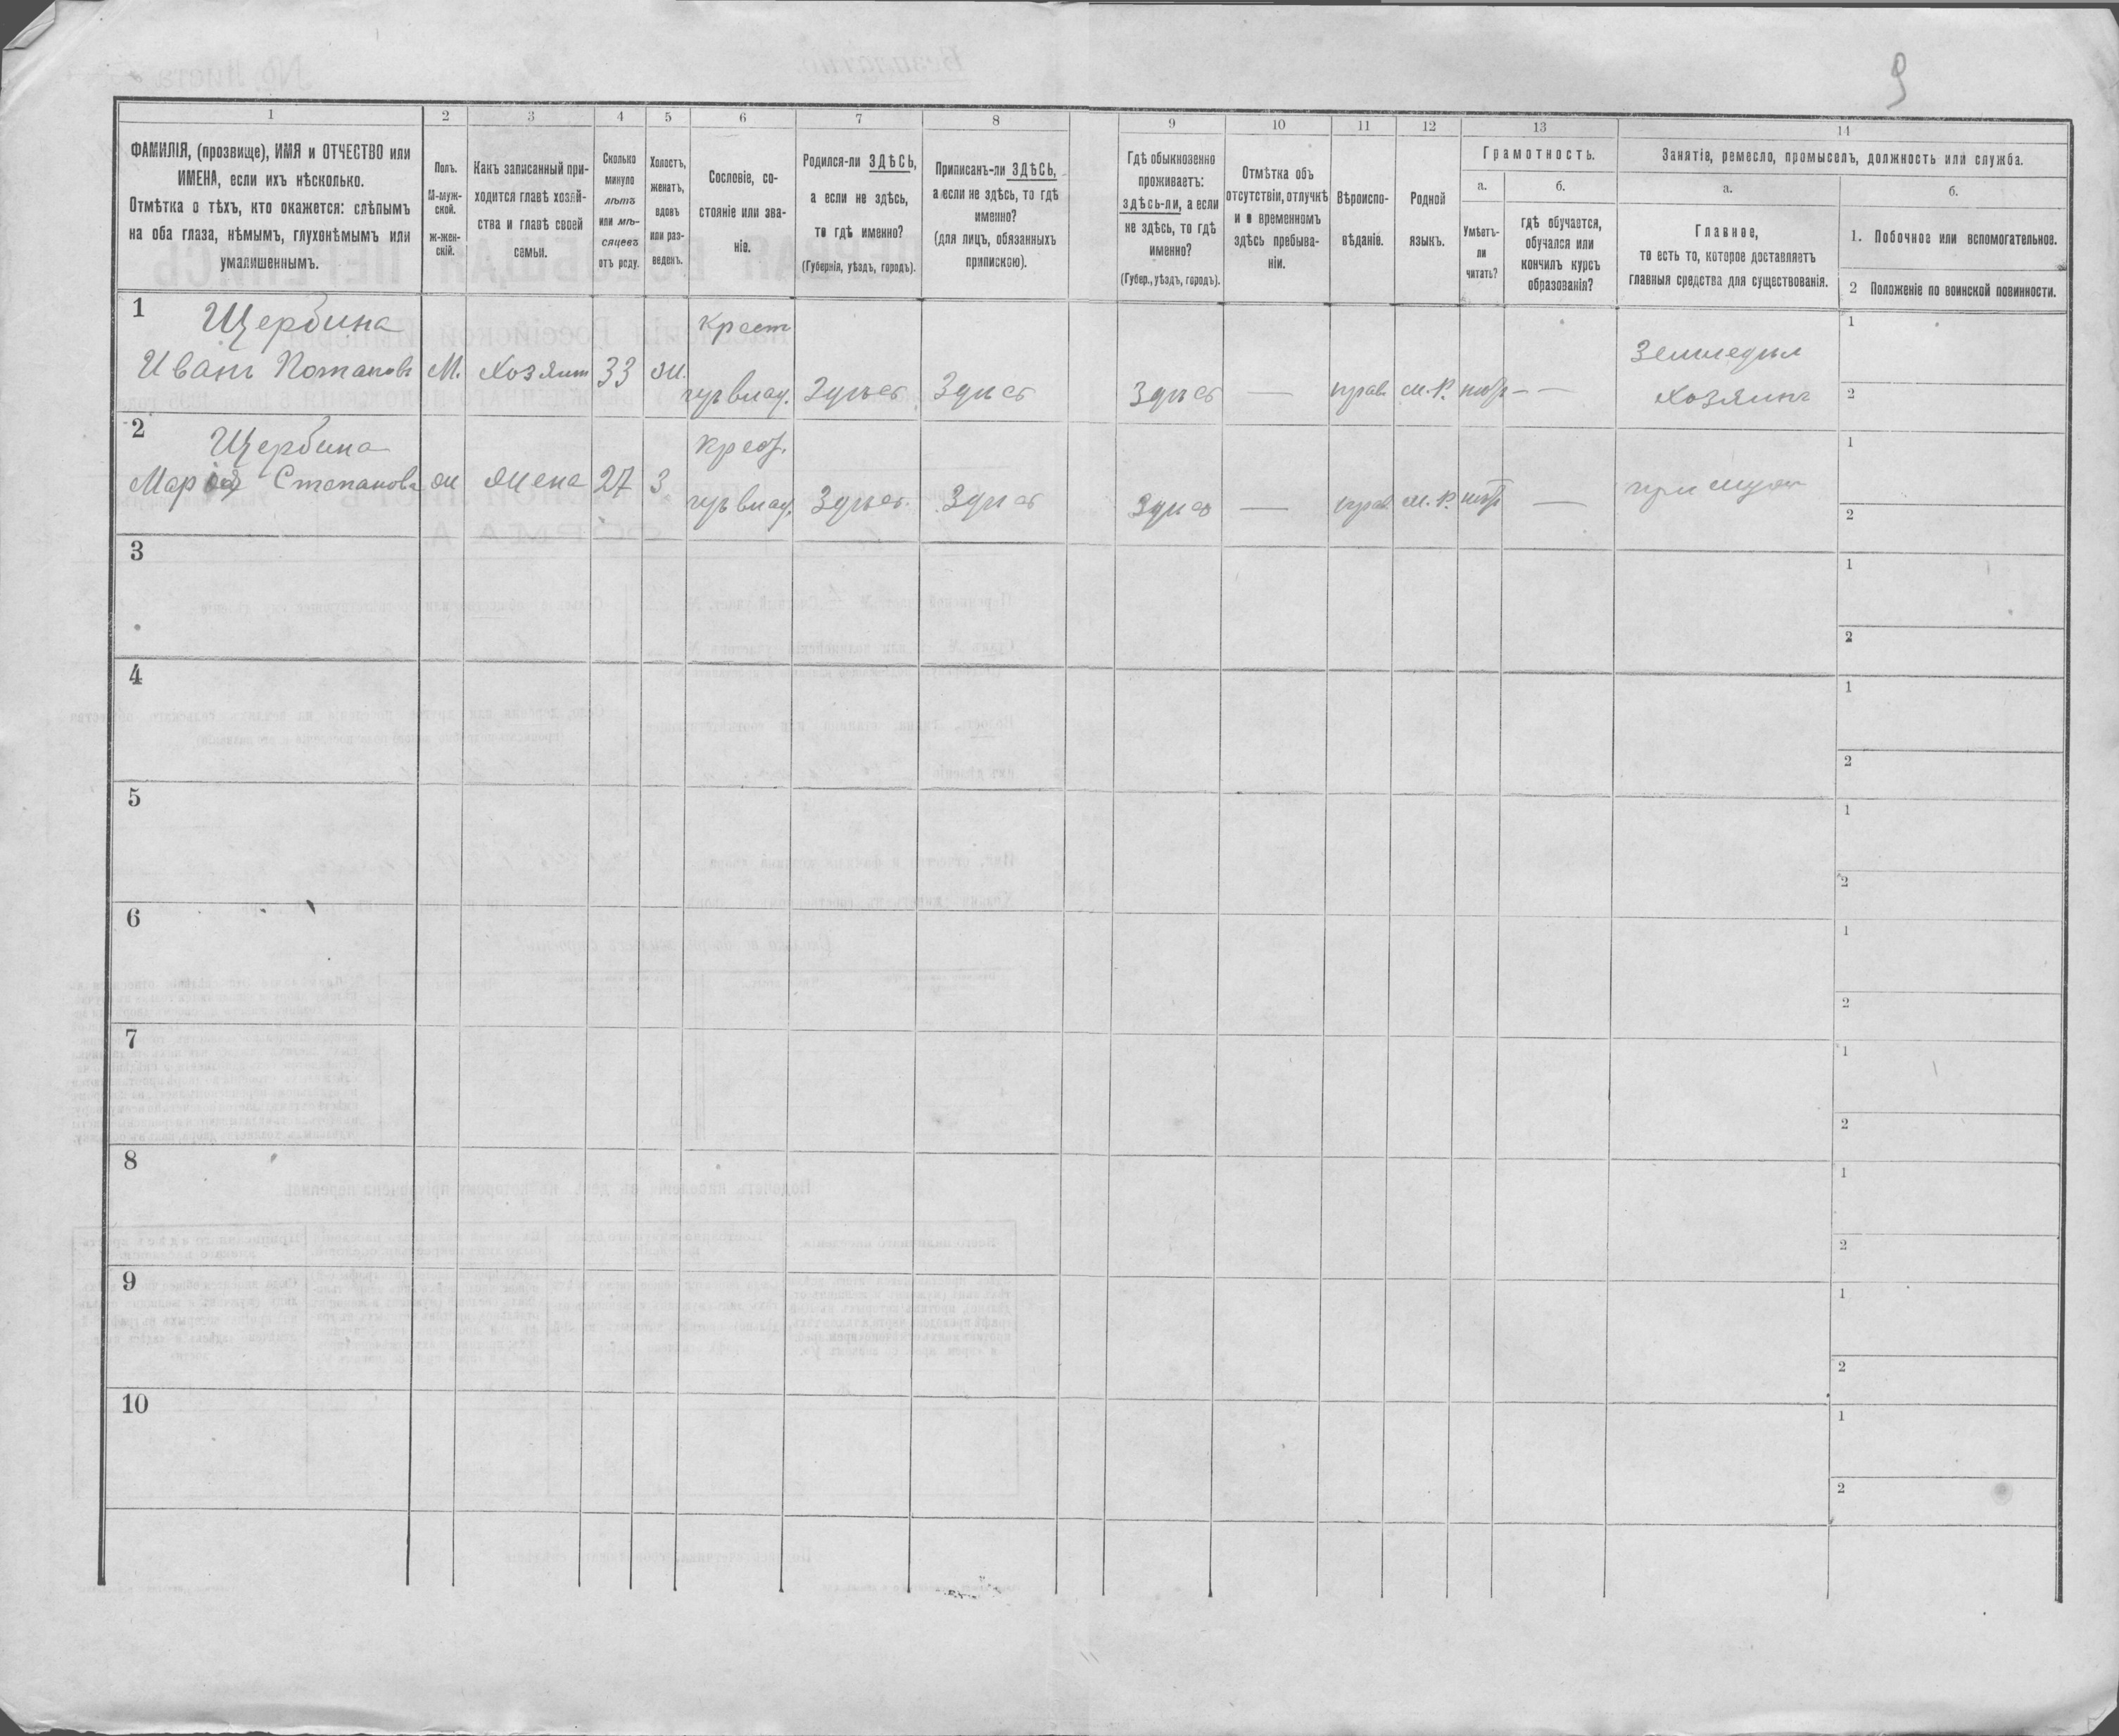 9
1
2
3
4
5
6
7
8
9
10
11
12
13
14
ФАМИЛІЯ, (прозвище), ИМЯ и ОТЧЕСТВО или
ИМЕНА, если ихъ нѣсколько.
Отмѣтка о тѣхъ, кто окажется: слѣпымъ
на оба глаза, нѣмымъ, глухонѣмымъ или
умалишеннымъ.
Полъ.
М-муж-
ской.
ж-жен-
скій.
Какъ записанный при-
ходится главѣ хозяй-
ства и главѣ своей
семьи.
Сколько
минуло
лѣтъ
или мѣ-
сяцевъ
отъ роду.
Холостъ,
женатъ,
вдовъ
или раз-
веденъ.
Сословіе, со-
стояніе или зва-
ніе.
Родился-ли ЗДѢСЬ,
а если не здѣсь,
то гдѣ именно?
(Губернія, уѣздъ, городъ).
Приписанъ-ли ЗДѢСЬ,
а если не здѣсь, то гдѣ
именно?
(для лицъ, обязанныхъ
припискою).
Гдѣ обыкновенно
проживаетъ:
здѣсь-ли, а если
не здѣсь, то гдѣ
именно?
(Губер., уѣздъ, городъ).
Отмѣтка объ
отсутствіи, отлучкѣ
и о временномъ
здѣсь пребыва-
ніи.
Вѣроиспо-
вѣданіе.
Родной
языкъ.
Грамотность.
а.
Умѣетъ-
ли
читать?
б.
гдѣ обучается,
обучался или
кончилъ курсъ
образованія?
Занятіе, ремесло, промыселъ, должность или служба.
а.
Главное,
то есть то, которое доставляетъ
главныя средства для существованія.
б.
1. Побочное или вспомогательное.
2 Положеніе по воинской повинности.
1
Щербина
Иванъ Потаповъ
М.
Хозяинъ
33
ж.
крест
Здѣсь
Здѣсь
Здѣсь
—
прав.
м.р.
нѣтъ
— —
Земледѣл
хозяинъ
1
2
2
Щербина
Марія Степанова
ж
Жена
27
З.
крест.
Здѣсь
Здѣсь
Здѣсь
—
прав.
м.р.
нѣтъ
—
при мужѣ
1
2
3
1
2
4
1
2
5
1
2
6
1
2
7
1
2
8
1
2
9
1
2
10
1
2